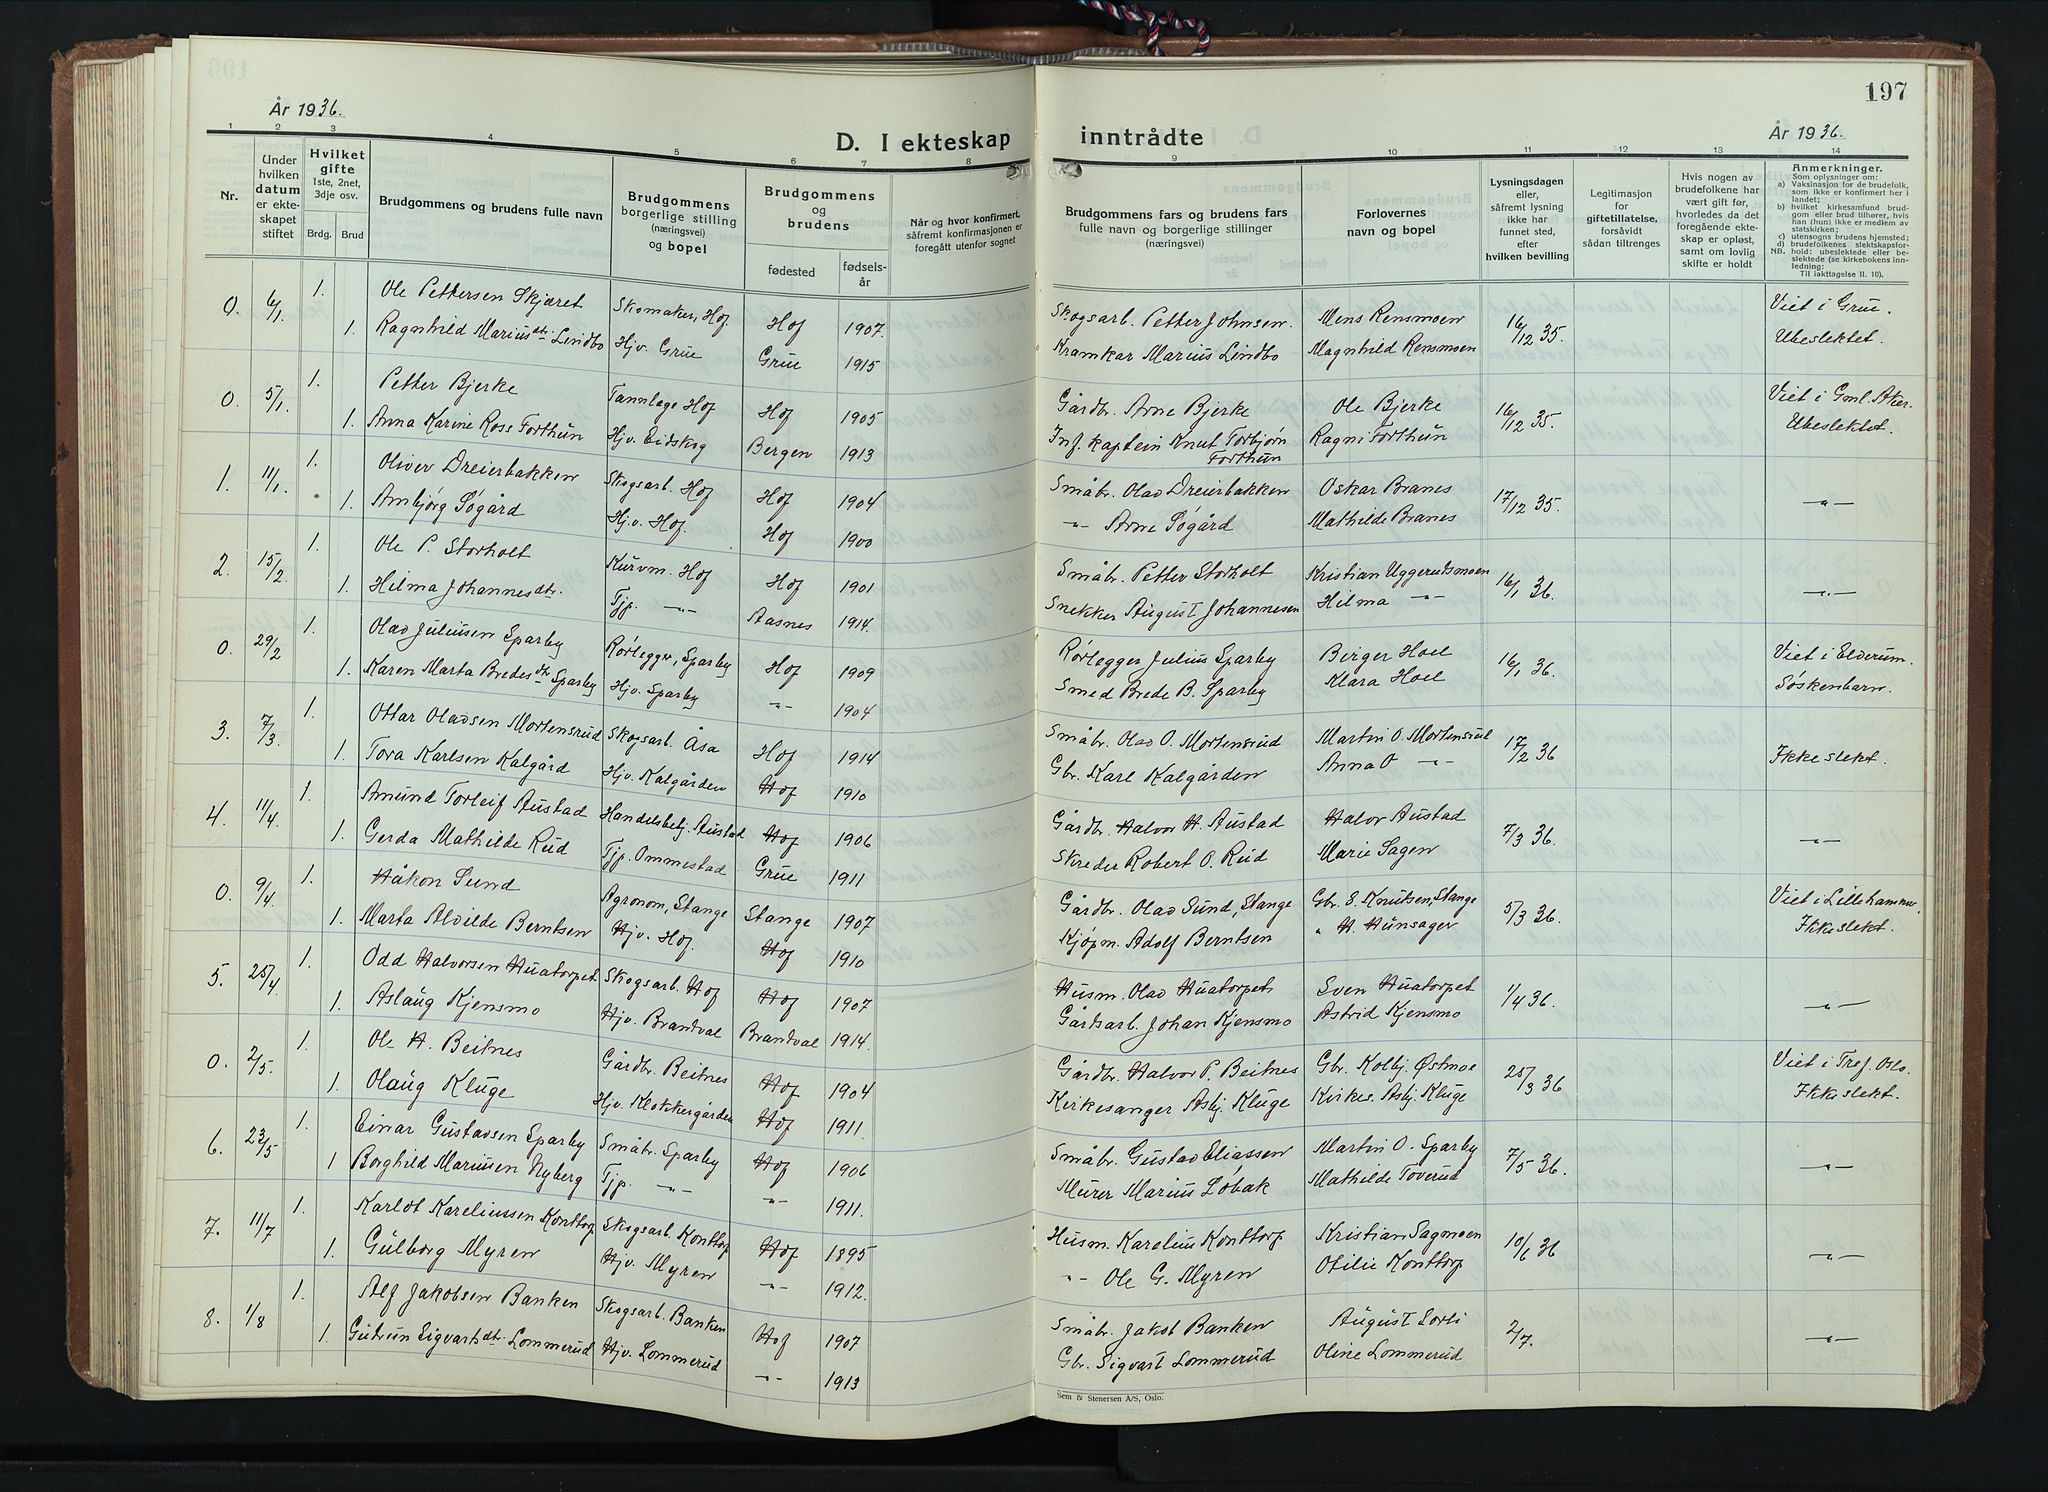 197
År 1936.
D. I ekteskap inntrådte
År 1936.
1 2 3 4 5 6 7 8 9 10 11 12 13 14
Nr.
Under hvilken datum er ekteskapet stiftet
Hvilket gifte 1ste, 2net, 3dje osv.
Brdg. Brud
Brudgommens og brudens fulle navn
Brudgommens borgerlige stilling (næringsvei) og bopel
Brudgommens og brudens
fødested
fødselsår
Når og hvor konfirmert, såfremt konfirmasjonen er foregått utenfor sognet
Brudgommens fars og brudens fars fulle navn og borgerlige stillinger (næringsvei)
Forlovernes navn og bopel
Lysningsdagen eller, såfremt lysning ikke har funnet sted, efter hvilken bevilling
Legitimasjon for giftetillatelse, forsåvidt sådan tiltrenges
Hvis nogen av brudefolkene har vært gift før, hvorledes da det foregående ekteskap er opløst, samt om lovlig skifte er holdt
Anmerkninger.
Som oplysninger om:
a) Vaksinasjon for de brudefolk, som ikke er konfirmert her i landet;
b) hvilket kirkesamfund brudgom eller brud tilhører, hvis han (hun) ikke er medlem av statskirken;
c) utensogns brudens hjemsted;
d) brudefolkenes slektskapsforhold: ubeslektede eller beslektede (se kirkebokens innledning:
NB.
Til iakttagelse II. 10).
0. 6/1. 1. Ole Pettersen Skjæret Skomaker, Hof. Hof 1907. Skogsarb. Petter Johnsen. Mens Rensmoen 16/12 35. Viet i Grue.
1. Ragnhild Mariusdtr. Lindbo Hjv. Grue Grue 1915 Kramkar Marius Lindbo Magnhild Rensmoen Ubeslektet.
0. 5/1. 1. Petter Bjerke Tannlæge Hof Hof 1905 Gårdbr. Arne Bjerke Ole Bjerke 16/12 35. Viet i Gml. Aker.
1. Anna Karine Ross Forthun Hjv. Eidskog Bergen 1913 Inf. kaptein Knut Torbjørn Forthun Ragni Forthun Ubeslektet.
1. 11/1. 1. Oliver Dreierbakken Skogsarb. Hof Hof 1904 Småbr. Olav Dreierbakken Oskar Branes 17/12 35. -"-
1. Ambjørg Søgård Hjv. Hof. Hof 1900 -"- Arne Søgård Mathilde Branes
2. 15/2. 1. Ole P. Storholt Kurvm. Hof Hof 1901 Småbr. Petter Storholt Kristian Uggerudsmoen 16/1 36. -"-
1. Hilma Johannesdtr. Tjp. -"- Aasnes 1914. Snekker August Johannesen Hilma -"-
0. 29/2 1. Olav Juliussen Sparby Rørlegger, Sparby Hof 1909 Rørlegger Julius Sparby Berger Hoel 16/1 36. Viet i Elverum.
1. Karen Marta Bredesdtr Sparby Hjv. Sparby -"- 1904 Smed Brede B. Sparby Klara Hoel Søskenbarn.
3. 7/3. 1. Ottar Olavsen Mortensrud Skogsarb. Åsa Hof 1914 Småbr. Olav O. Mortensrud Martin O. Mortensrud 17/2 36 Ikke slekt.
1. Tora Karlsen Kalgård Hjv. Kalgården Hof 1910 Gbr. Karl Kalgården Anna O -"-
4. 11/4. 1. Amund Torleif Austad Handelsbetj. Austad Hof 1906 Gårdbr. Halvor H. Austad Halvor Austad 7/3 36. -"-
1. Gerda Mathilde Rud Tjp. Ommestad Grue 1911 Skreder Robert O. Rud Marie Sagen
0. 9/4. 1. Håkon Sund Agronom, Stange Stange 1907 Gårdbr. Olav Sund, Stange Gbr. E. Knutsen, Stange 5/3 36. Viet i Lillehammer.
1. Marta Alvilde Berntsen Hjv. Hof. Hof 1910 Kjøpm. Adolf Berntsen " H. Hunsager Ikke slekt.
5. 25/4. 1. Odd Halvorsen Huatorpet Skogsarb. Hof Hof 1907 Husm. Olav Huatorpet Sven Huatorpet 1/4 36. -"-
1. Aslaug Kjensmo Hjv. Brandval Brandval 1914. Gårdsarb. Johan Kjensmo Astrid Kjensmo
0. 2/5. 1. Ole H. Beitnes Gårdbr. Beitnes Hof 1904 Gårdbr. Halvor P. Beitnes Gbr. Kolbj. Østmoe 25/3 36 Viet i Tref. Oslo.
1. Olaug Kluge Hjv. Klokkergården Hof 1911. Kirkesanger Asbj. Kluge Kirkes. Asbj. Kluge Ikke slekt.
6. 23/5 1. Einar Gustavsen Sparby Småbr. Sparby Hof 1906 Småbr. Gustav Eliassen Martin O. Sparby 7/5 36. -"-
1 Borghild Mariusen Nyberg Tjp. -"- -"- 1911. Murer Marius Løbak Mathilde Toverud
7. 11/7 1. Karlot Kareliussen Konttorp Skogsarb. Konttorp Hof 1895 Husm. Karelius Konttorp Kristian Sagmoen 10/6 36 -"-
1. Gulborg Myren Hjv. Myren -"- 1912. -"- Ole G. Myren Otilie Konttorp
8. 1/8 1. Alf Jakobsen Banken Skogsarb. Banken Hof 1907 Småbr. Jakob Banken August Lorli 2/7. -"-
1. Gudrun Sigvartsdtr. Lommerud Hjv. Lommerud -"- 1913 Gbr. Sigvart Lommerud Oline Lommerud
Sem & Stenersen A/S, Oslo.